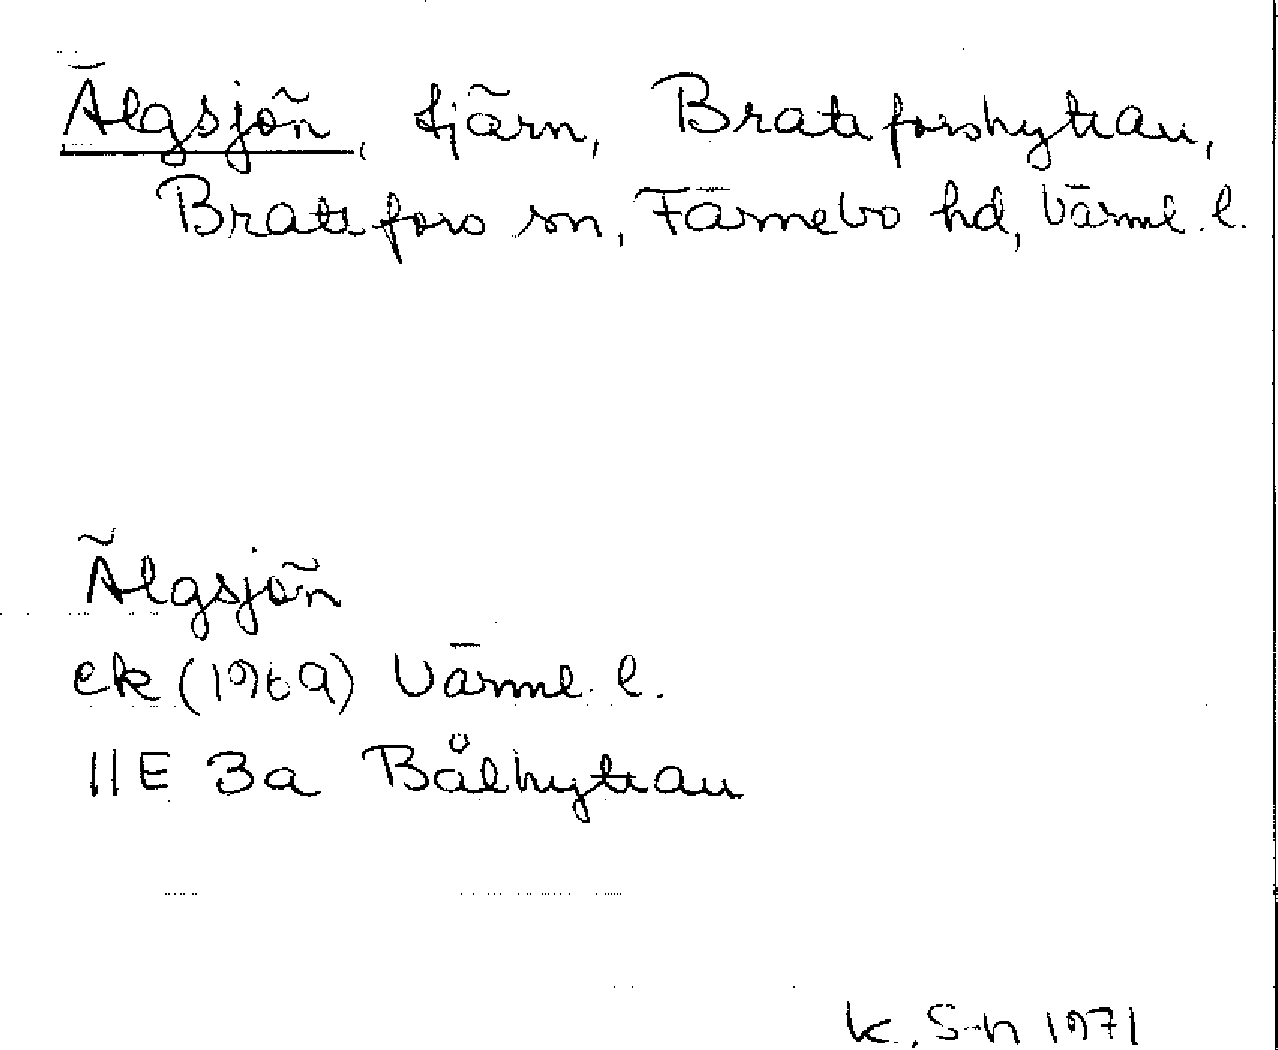 Älgsjön, tjärn, Brattforshyttan,
Brattfors sn, Färnebo hd, Värml. l.
Älgsjön
ek (1969) Värml. l.
11E 3a Bålhyttan
K. S-n 1971